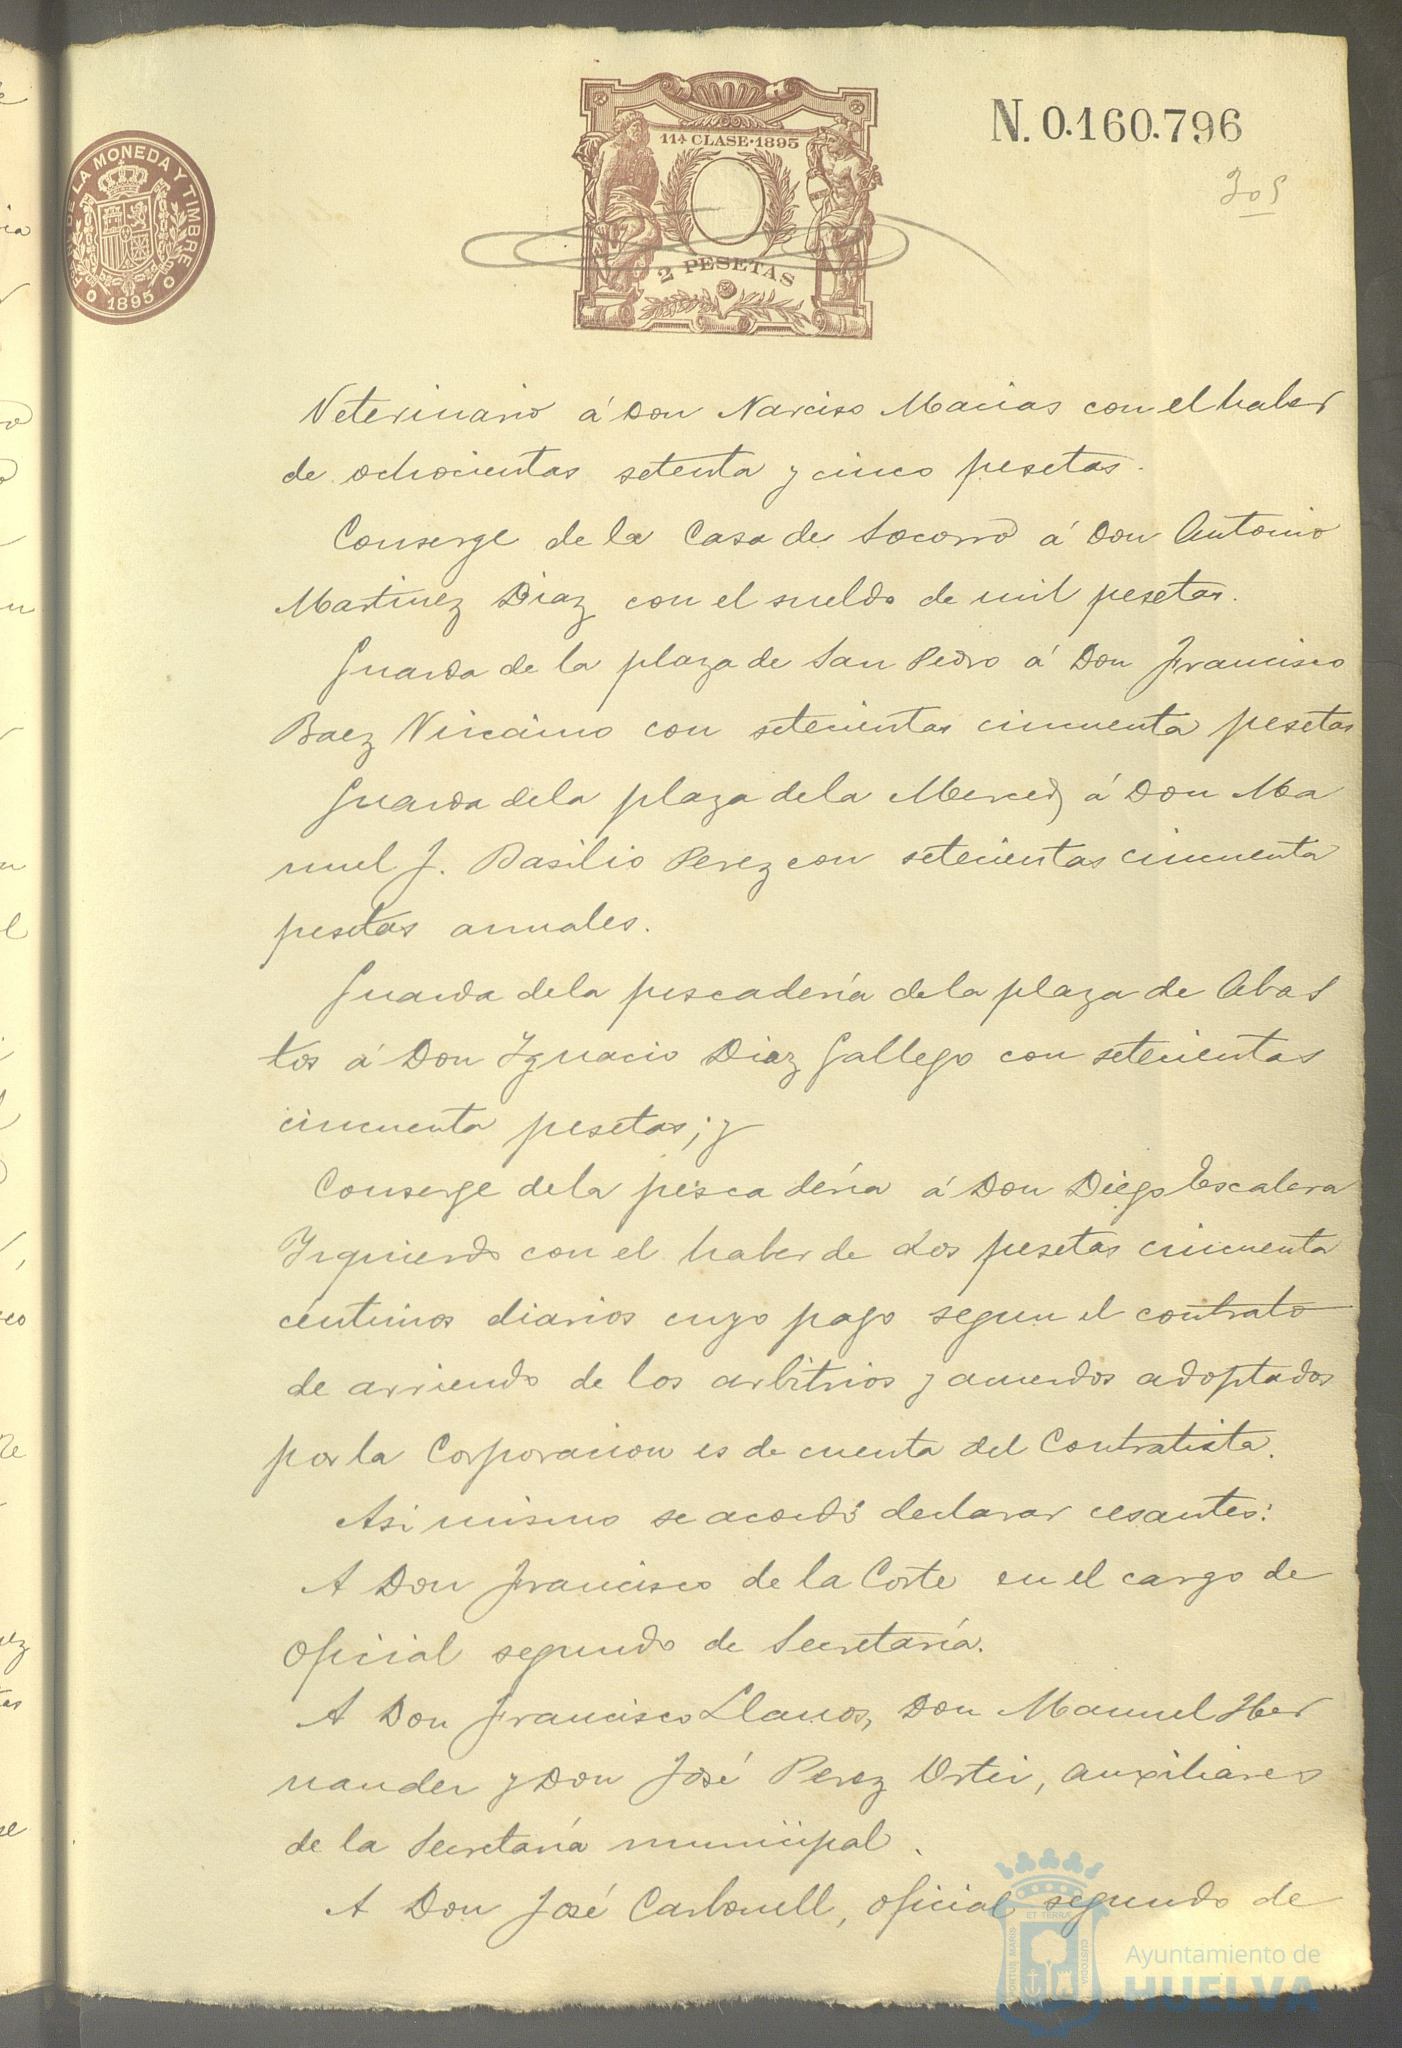 N. 0.160.796
11ª CLASE·1895
2 PESETAS
DE LA MONEDA Y TIMBRE
1895
Veterinario á Don Narciso Macias con el haber
de ochocientas setenta y cinco pesetas.
Conserge de la Casa de Socorro á Don Antonio
Martinez Diaz con el sueldo de mil pesetas.
Guarda de la plaza de San Pedro á Don Francisco
Baez con setecientas cincuenta pesetas
Guarda de la plaza de la Merced á Don Ma
nuel J. Basilio Perez con setecientas cincuenta
pesetas anuales.
Guarda de la pescadería de la plaza de Abas
tos á Don Ignacio Diaz Gallego con setecientas
cincuenta pesetas; y
Conserge de la pescadería á Don Diego Escalera
Izquierdo con el haber de dos pesetas cincuenta
centimos diarios cuyo pago segun el contrato
de arriendo de los arbitrios y acuerdos adoptados
por la Corporacion es de cuenta del Contratista.
Asi mismo se acordó declarar cesantes:
A Don Francisco de la Corte en el cargo de
Oficial segundo de Secretaría.
A Don Francisco Llanos, Don Manuel Her
nandez y Don José Perez Ortiz, auxiliares
de la Secretaría municipal.
A Don José Carbonell, oficial segundo de
PORTUS MARIS
ET TERRÆ
CUSTODIA
Ayuntamiento de
HUELVA